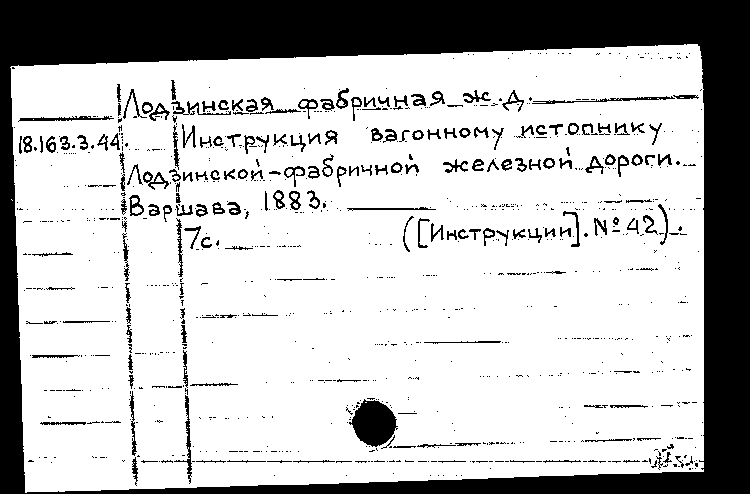 Лодзинская фабричная ж.д.
18.163.3.44. Инструкция вагонному истопнику
Лодзинской-фабричной железной дороги.
Варшава, 1883.
7с. ([Инструкции]. № 42).